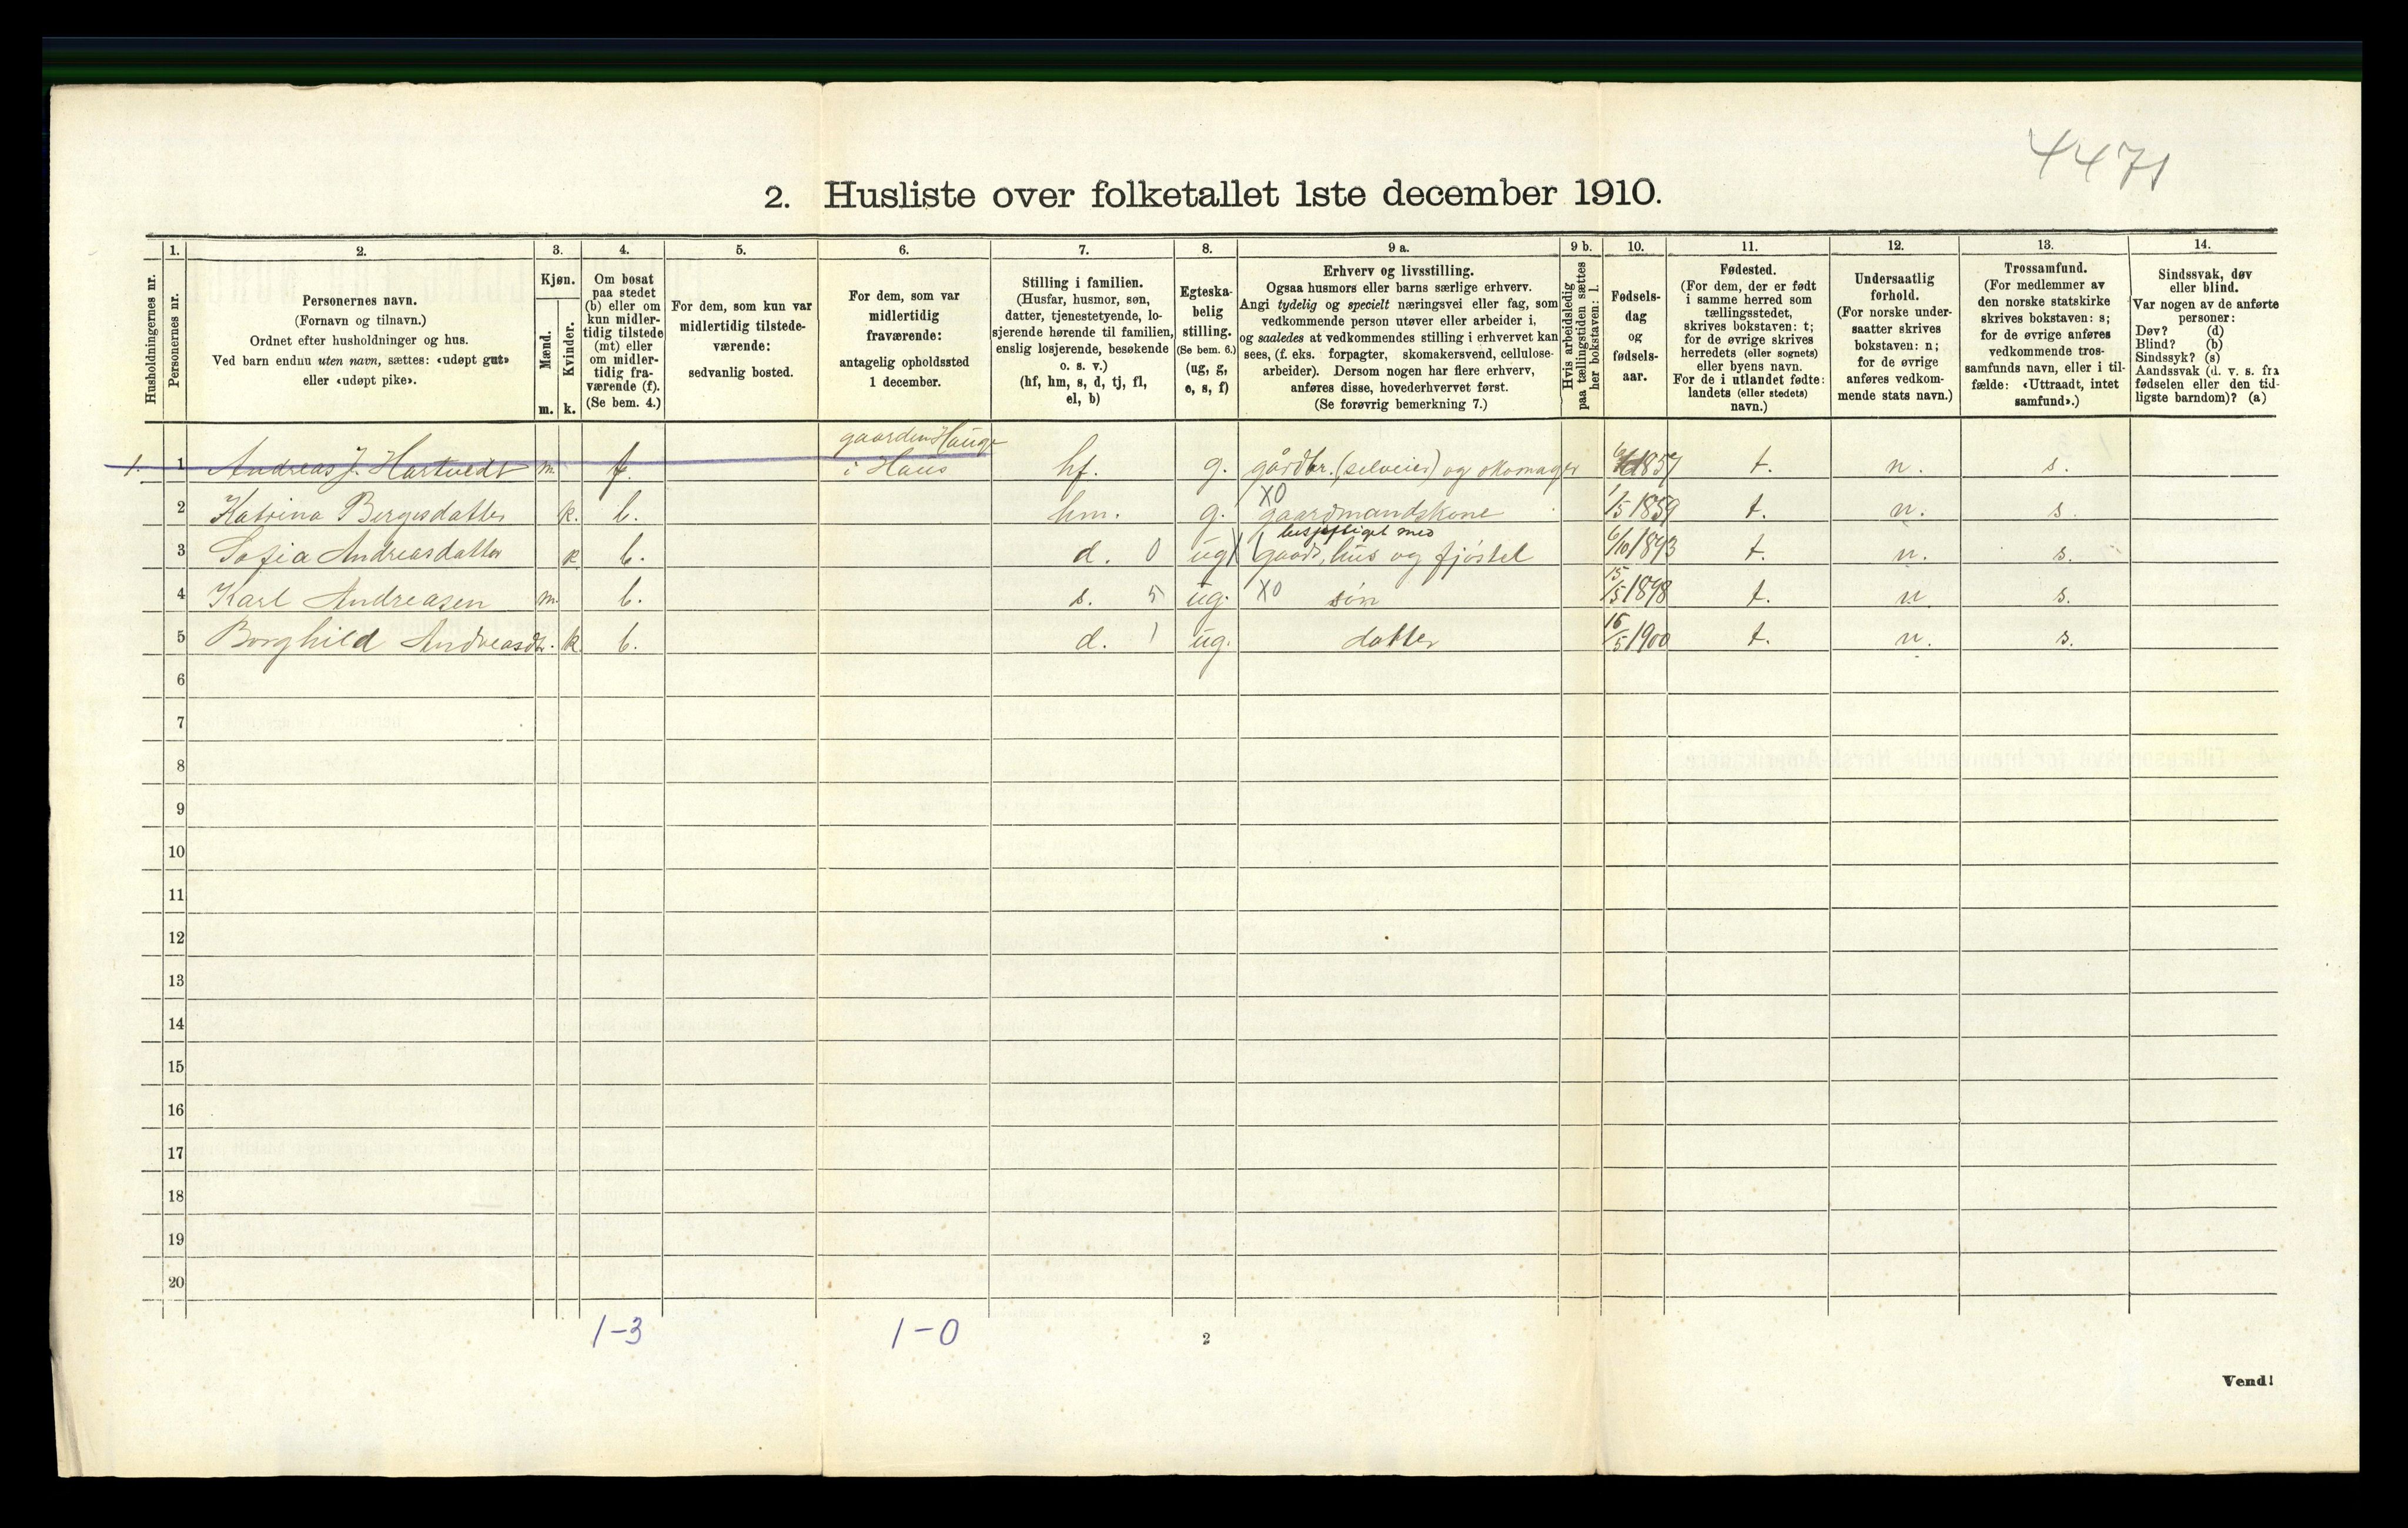 4471
2. Husliste over folketallet 1ste december 1910.
1.
2.
3.
4.
5.
6.
7.
8.
9 a.
9 b.
10.
11.
12.
13.
14.
Husholdningernes nr.
Personernes nr.
Personernes navn.
(Fornavn og tilnavn.)
Ordnet efter husholdninger og hus.
Ved barn endnu uten navn, sættes: «udøpt gut»
eller «udøpt pike».
Kjøn.
Mænd.
Kvinder.
m. k.
Om bosat
paa stedet
(b) eller om
kun midler-
tidig tilstede
(mt) eller
om midler-
tidig fra-
værende (f).
(Se bem. 4.)
For dem, som kun var
midlertidig tilstede-
værende:
sedvanlig bosted.
For dem, som var
midlertidig
fraværende:
antagelig opholdssted
1 december.
Stilling i familien.
(Husfar, husmor, søn,
datter, tjenestetyende, lo-
sjerende hørende til familien,
enslig losjerende, besøkende
o. s. v.)
(hf, hm, s, d, tj, fl,
el, b)
Egteska-
belig
stilling.
(Se bem. 6.)
(ug, g,
e, s, f)
Erhverv og livsstilling.
Ogsaa husmors eller barns særlige erhverv.
Angi tydelig og specielt næringsvei eller fag, som
vedkommende person utøver eller arbeider i,
og saaledes at vedkommendes stilling i erhvervet kan
sees, (f. eks. forpagter, skomakersvend, cellulose-
arbeider). Dersom nogen har flere erhverv,
anføres disse, hovederhvervet først.
(Se forøvrig bemerkning 7.)
Hvis arbeidsledig
paa tællingstiden sættes
her bokstaven: l.
Fødsels-
dag
og
fødsels-
aar.
Fødested.
(For dem, der er født
i samme herred som
tællingsstedet,
skrives bokstaven: t;
for de øvrige skrives
herredets (eller sognets)
eller byens navn.
For de i utlandet fødte:
landets (eller stedets)
navn.)
Undersaatlig
forhold.
(For norske under-
saatter skrives
bokstaven: n;
for de øvrige
anføres vedkom-
mende stats navn.)
Trossamfund.
(For medlemmer av
den norske statskirke
skrives bokstaven: s;
for de øvrige anføres
vedkommende tros-
samfunds navn, eller i til-
fælde: «Uttraadt, intet
samfund».)
Sindssvak, døv
eller blind.
Var nogen av de anførte
personer:
Døv? (d)
Blind? (b)
Sindssyk? (s)
Aandssvak (d. v. s. fra
fødselen eller den tid-
ligste barndom)? (a)
gaarden Hauge
1. 1 Andreas J. Hartvedt m. f. i Haus hf. g. gårdbr. (selveier) og skomager 1857 t. n. s.
XO
2 Katrina Bergesdatter k. b. hm. g. gaardmandskone 1/5 1859 t. n. s.
3 Sofia Andreasdatter k b. d. 0 ug gaards, hus og fjøstel 6/10 1893 t. n. s.
4 Karl Andreasen m. b. s. 5 ug. XO søn 15/5 1898 t. n. s.
5 Borghild Andreasdr. k. b. d. 1 ug. datter 16/5 1900 t. n. s.
6
7
8
9
10
11
12
13
14
15
16
17
18
19
20
1-3 1-0 2
Vend!